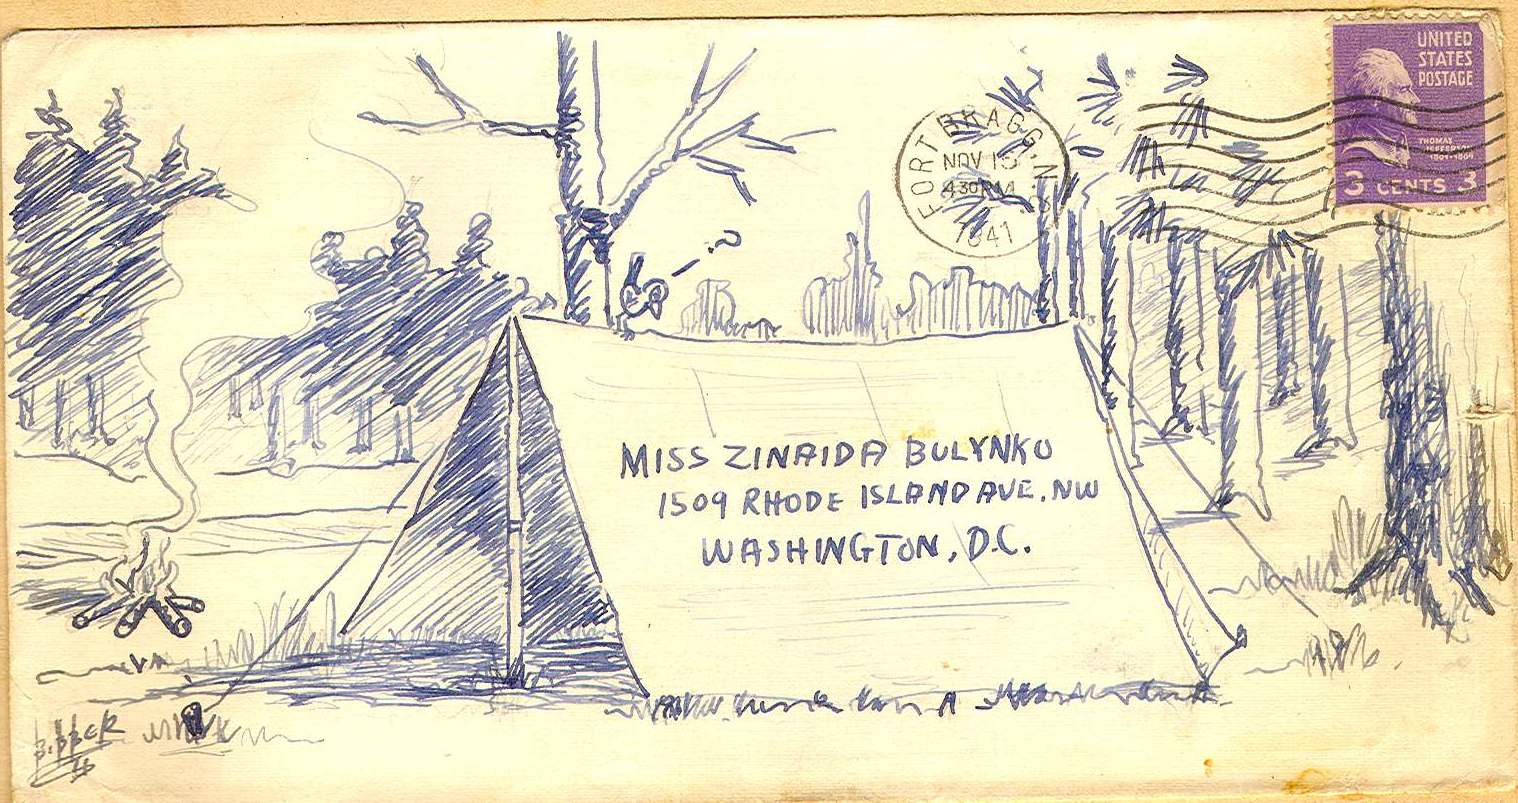 UNITED
STATES
POSTAGE
THOMAS
JEFFERSON
1801-1809
3 CENTS 3
FORT BRAGG, N.C.
NOV 15
430 PM
1941
MISS ZINAIDA BULYNKO
1509 RHODE ISLAND AVE. NW
WASHINGTON, D.C.